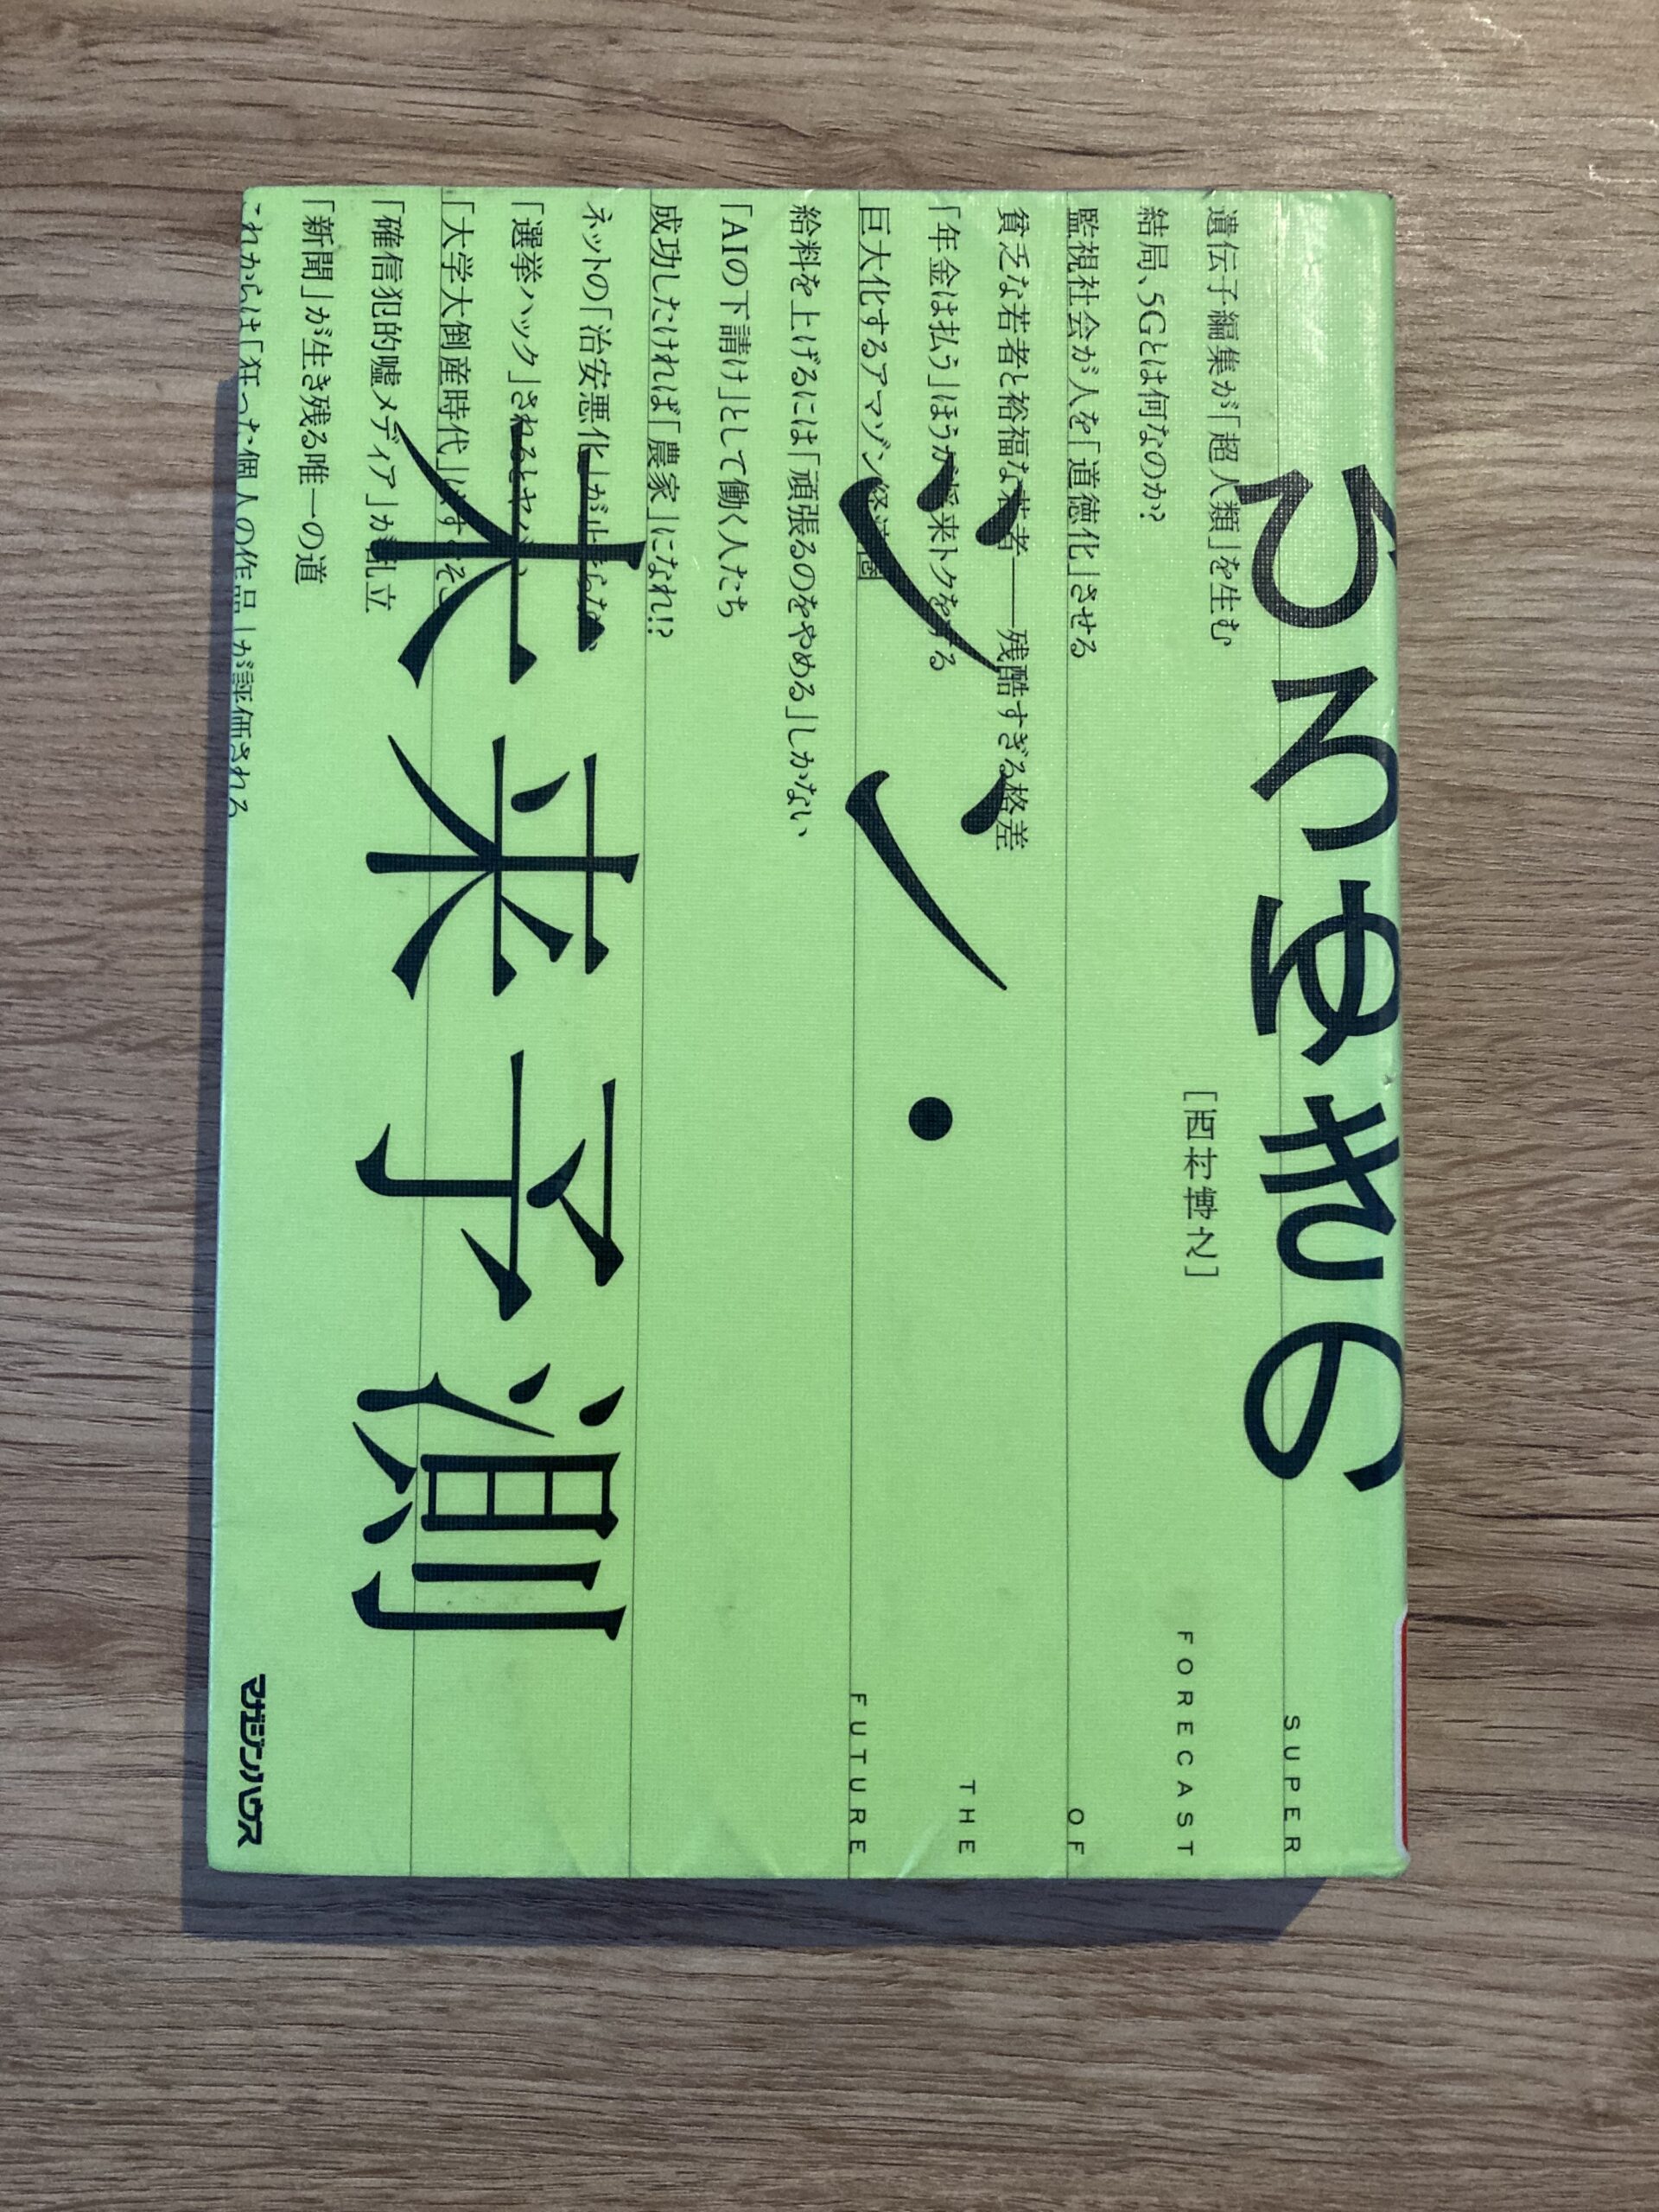 ひろゆきの
シン・
未来予測
[西村博之]
SUPER
FORECAST
OF
THE
FUTURE
遺伝子編集が「超人類」を生む
結局、5Gとは何なのか?
監視社会が人を「道徳化」させる
貧乏な若者と裕福な若者――残酷すぎる格差
「年金は払う」ほうが将来トクをする
巨大化するアマゾン経済圏
給料を上げるには「頑張るのをやめる」しかない
「AIの下請け」として働く人たち
成功したければ「農家」になれ!?
ネットの「治安悪化」が止まらない
「選挙ハック」されるとヤバい
「大学大倒産時代」はすぐそこ
「確信犯的嘘メディア」が乱立
「新聞」が生き残る唯一の道
これからは「狂った個人の作品」が評価される
マガジンハウス